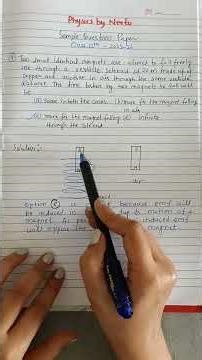 Physics by Neetu
Sample Question Paper
Class 12th - 2023-24
Two small identical magnets are allowed to fall freely
one through a vertically solenoid made up of
copper and another in air through the same vertical
distance. The time taken by two magnets to fall will
be
(i) same in both the cases (ii) more for the magnet falling
in air
(iii) more for the magnet falling (iv) infinite
through the solenoid
Solution:
Option is because emf will
be induced in due to motion of
magnet induced emf
will oppose the magnet